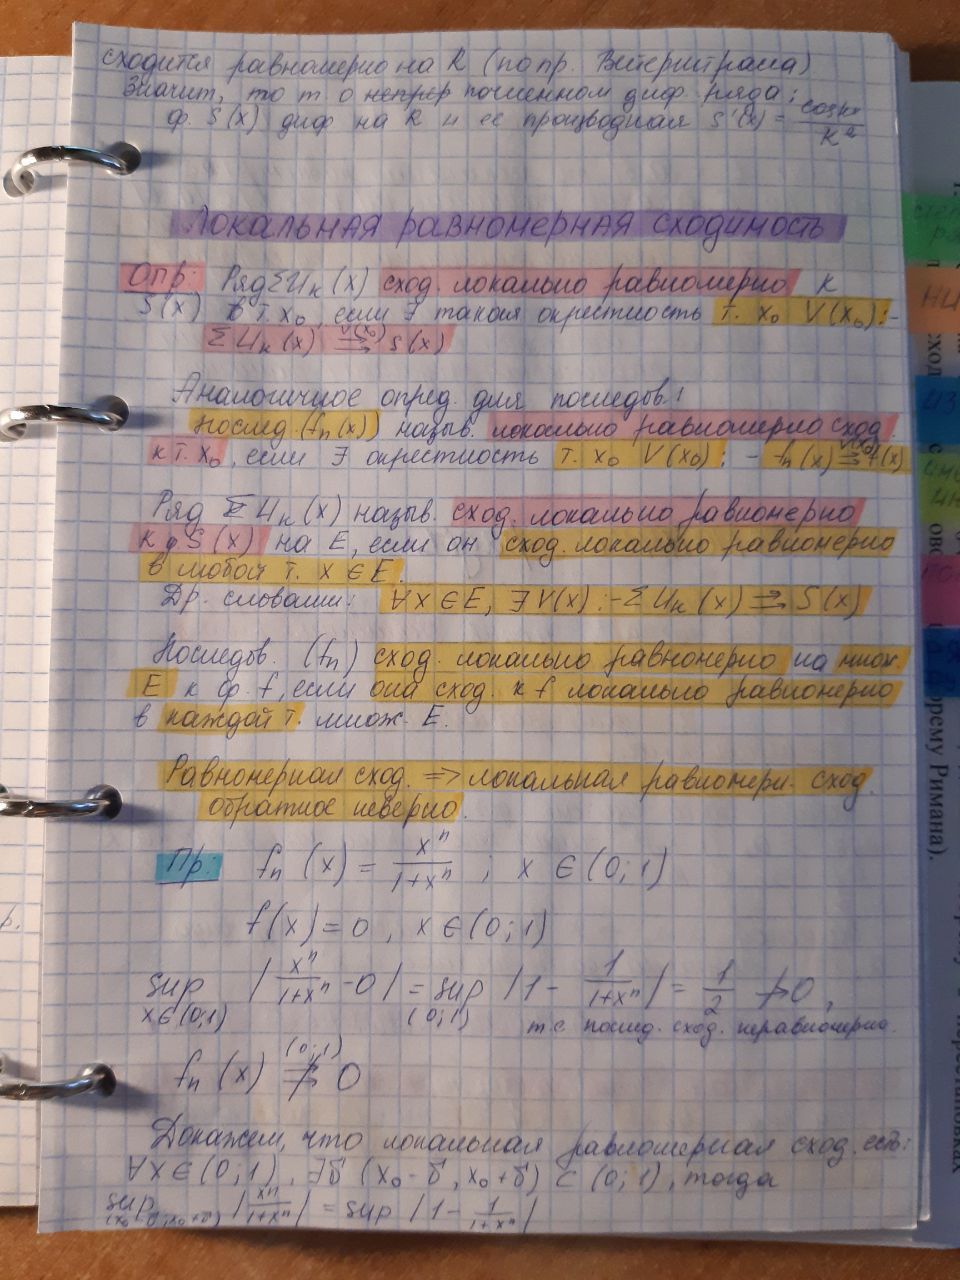 сходится равномерно на R (по пр. Вейерштрасса)
Значит, по т. о непрер почленном диф. ряда:
ф. S(x) диф на R и ее производная S'(x) = cos kx / k²
Локальная равномерная сходимость
Опр: Ряд Σ Uₖ(x) сход. локально равномерно к
S(x) в т. x₀, если ∃ такая окрестность т. x₀ V(x₀):-
Σ Uₖ(x) ⇉ S(x) V(x₀)
Аналогичное опред. для последов.:
Послед. (fₙ(x)) назыв. локально равномерно сход.
к т. x₀, если ∃ окрестность т. x₀ V(x₀): - fₙ(x) ⇉ f(x) V(x₀)
Ряд Σ Uₖ(x) назыв. сход. локально равномерно
к S(x) на E, если он сход. локально равномерно
в любой т. x ∈ E.
Др. словами: ∀x ∈ E, ∃ V(x):- Σ Uₖ(x) ⇉ S(x)
Последов. (fₙ) сход. локально равномерно на множ.
E к ф. f, если она сход. к f локально равномерно
в каждой т. множ. E.
Равномерная сход. => локальная равномерн. сход.
обратное неверно.
Пр: fₙ(x) = xⁿ / 1+xⁿ ; x ∈ (0;1)
f(x) = 0, x ∈ (0;1)
sup x∈(0;1) | xⁿ / 1+xⁿ - 0 | = sup (0;1) | 1 - 1 / 1+xⁿ | = 1/2 ↛ 0,
т.е. послед. сход. неравномерно.
fₙ(x) ⇉̸ 0 (0;1)
Докажем, что локальная равномерная сход. есть:
∀x ∈ (0;1), ∃δ (x₀-δ, x₀+δ) ⊂ (0;1), тогда
sup (x₀-δ; x₀+δ) | xⁿ / 1+xⁿ | = sup | 1 - 1 / 1+xⁿ |
орему Римана).